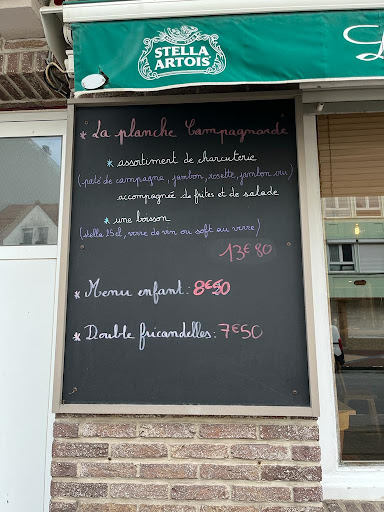 STELLA
ARTOIS
* La planche Campagnarde
* assortiment de charcuterie
(paté de campagne, jambon, rosette, jambon cru)
accompagnée de frites et de salade
* une boisson
(stella 25cl, verre de vin ou soft au verre)
13€80
* Menu enfant: 8€90
* Double fricandelles: 7€50